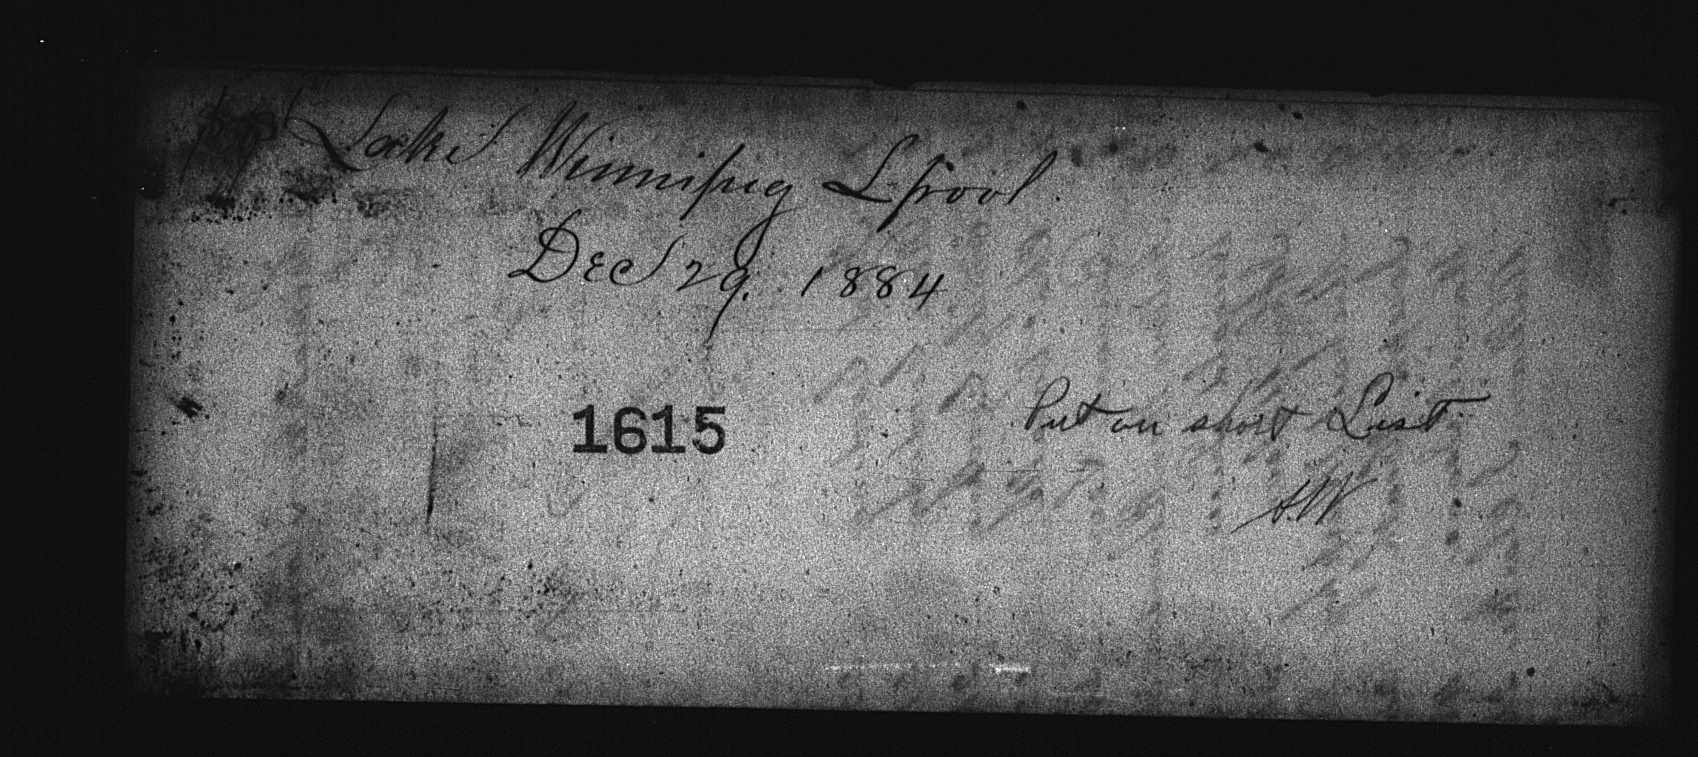 Lake Winnipeg L-pool.
Dec 29. 1884
1615
Put on short List.